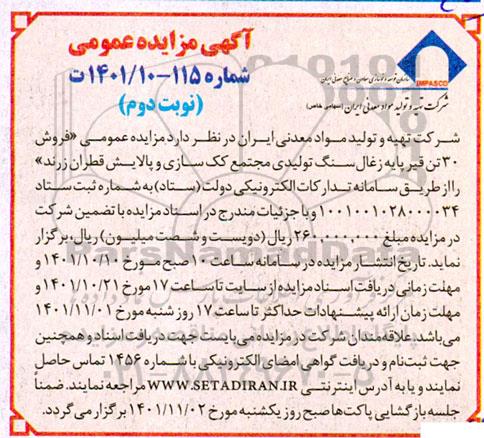 آگهی مزایده عمومی
شماره ۱۱۵-۱۴۰۱/۱۰ت
(نوبت دوم)
IMPASCO
سازمان توسعه و نوسازی معادن و صنایع معدنی ایران
شرکت تهیه و تولید مواد معدنی ایران (سهامی خاص)
شرکت تهیه و تولید مواد معدنی ایران در نظر دارد مزایده عمومی «فروش
۳۰ تن قیر پایه زغال سنگ تولیدی مجتمع کک سازی و پالایش قطران زرند»
را از طریق سامانه تدارکات الکترونیکی دولت (ستاد) به شماره ثبت ستاد
۱۰۰۱۰۰۱۰۲۸۰۰۰۰۳۴ و با جزئیات مندرج در اسناد مزایده با تضمین شرکت
در مزایده مبلغ ۲۶۰,۰۰۰,۰۰۰ ریال (دویست و شصت میلیون) ریال، برگزار
نماید. تاریخ انتشار مزایده در سامانه ساعت ۱۰ صبح مورخ ۱۴۰۱/۱۰/۱۰ و
مهلت زمانی دریافت اسناد مزایده از سایت تا ساعت ۱۷ مورخ ۱۴۰۱/۱۰/۲۱ و
مهلت زمان ارائه پیشنهادات حداکثر تا ساعت ۱۷ روز شنبه مورخ ۱۴۰۱/۱۱/۰۱
می‌باشد. علاقه‌مندان شرکت در مزایده می‌بایست جهت دریافت اسناد و همچنین
جهت ثبت‌نام و دریافت گواهی امضای الکترونیکی با شماره ۱۴۵۶ تماس حاصل
نمایند و یا به آدرس اینترنتی WWW.SETADIRAN.IR مراجعه نمایند. ضمناً
جلسه بازگشایی پاکت‌ها صبح روز یکشنبه مورخ ۱۴۰۱/۱۱/۰۲ برگزار می‌گردد.